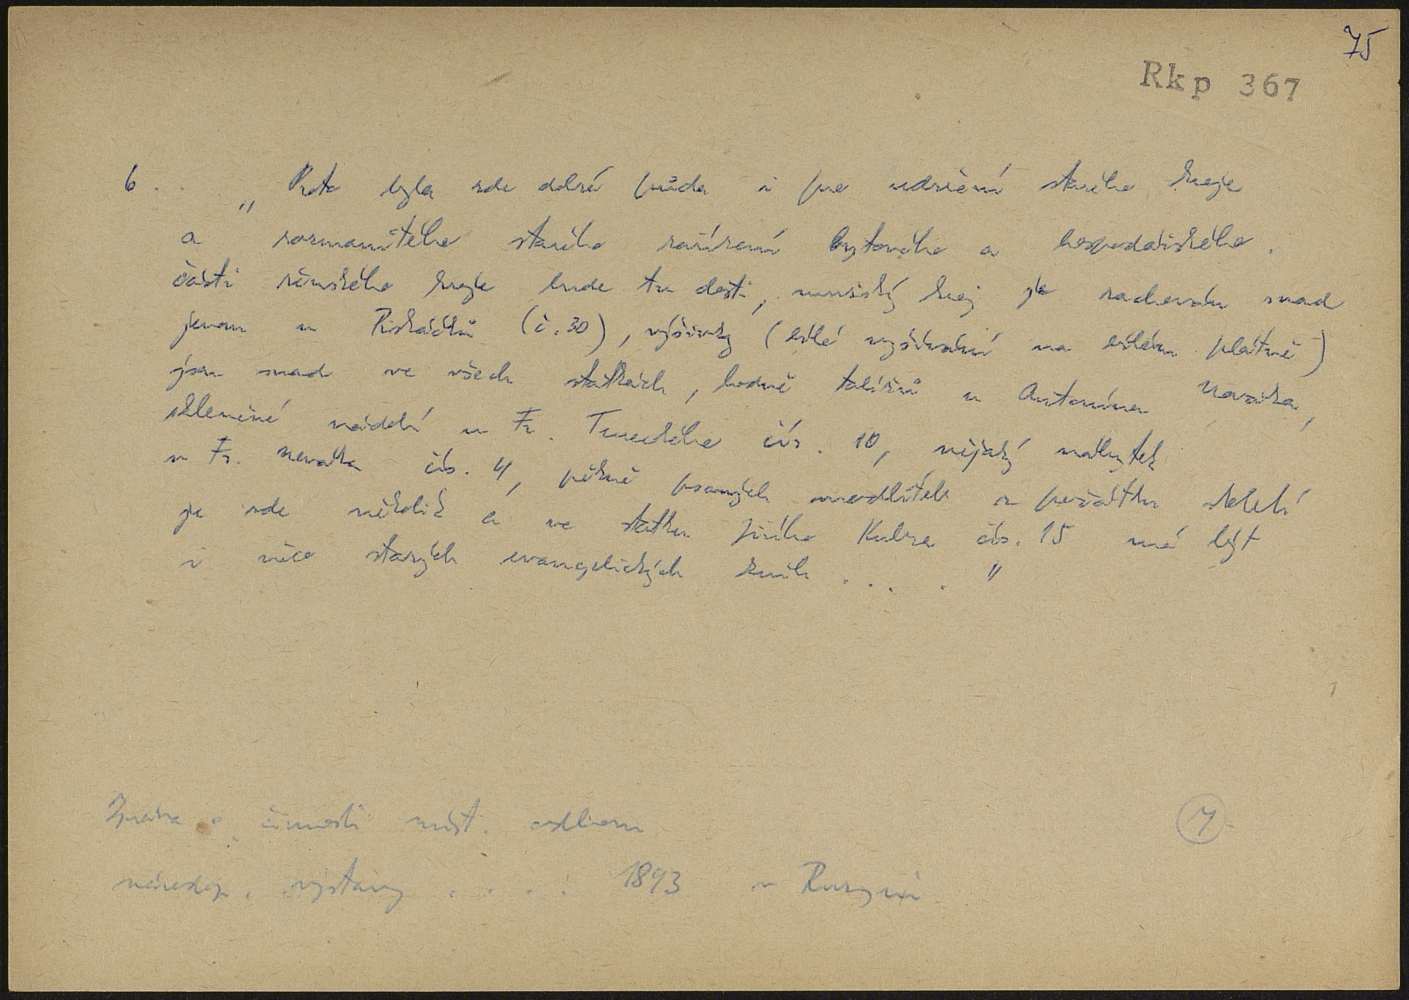 75
Rkp 367
6. . „ Proto byla zde dobrá půda i pro udržení starého kroje
a rozmanitého starého zařízení bytového a hospodářského.
části ženského kroje bude tu dosti, mužský kroj je zachován snad
jenom u Piskáčků (č. 30), výšivky (bílé vyšívání na bílém plátně)
jsou snad ve všech statkách, hodně talířů u Antonína Nováka,
skleněné nádobí u Fr. čís. 10, nějaký nábytek
u Fr. Nováka čís. 4, pěkně psaných modlitek z počátku století
je zde několik a ve statku Jiřího Kubra čís. 15 má být
i více starých evangelických knih . . . . "
Zpráva o činnosti míst. odboru
7
národop. výstavy . . . . 1893 v Ruzyni